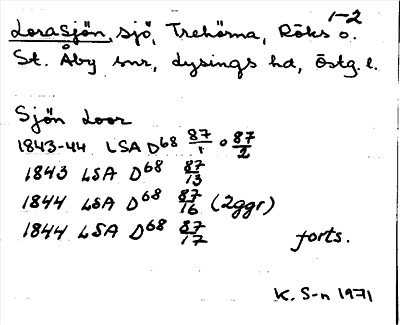 1-2
Lorasjön, sjö, Trehörna, Röks o.
St. Åby snr, Lysings hd, Östg. l.
Sjön Loor
1843-44 LSA D68 87/1 o 87/2
1843 LSA D68 87/13
1844 LSA D68 87/16 (2ggr)
1844 LSA D68 87/17 forts.
K. S-n 1971